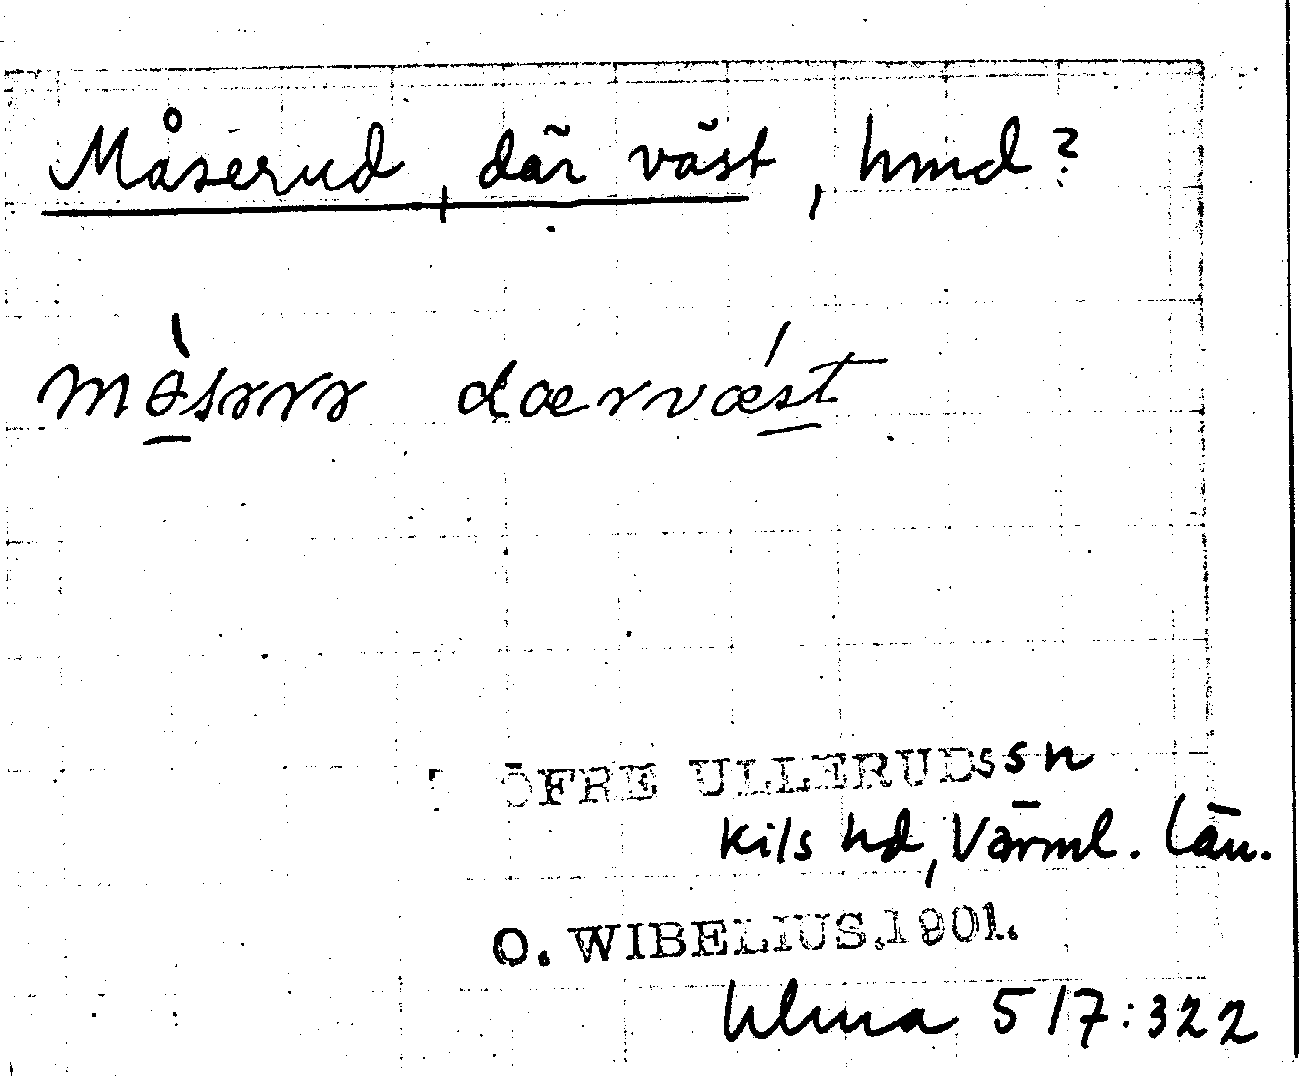 Måserud, där väst, hmd?
dærvǽst
ÖFRE ULLERUDS sn
Kils hd, Värml. län.
O. WIBELIUS. 1901.
Ulma 517:322